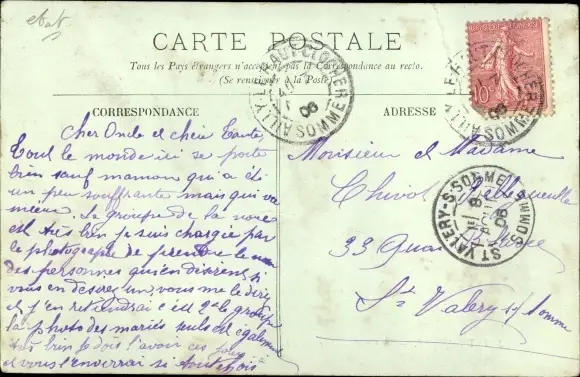 CARTE POSTALE
Tous les Pays étrangers n'acceptent pas la Correspondance au recto.
(Se renseigner à la Poste)
CORRESPONDANCE
Cher Oncle et chère Tante
Tout le monde ici se porte
bien sauf maman qui a été
un peu souffrante mais qui va
mieux. Le groupe de la noce
est très bien je suis chargée par
le photographe de prendre le nom
des personnes qui en désirent si
vous en désirez un, vous me le direz
et j'en retiendrai c'est 2f le groupe
la photo des mariés seuls est également
très bien je dois l'avoir ces jours
et vous l'enverrai si toutefois
ADRESSE
Monsieur et Madame
Chivot
33 Quai
St Valery s/ Somme
AILLY-LE-HAUT-CLOCHER
SOMME
06
ST VALERY-S-SOMME
SOMME
06
10